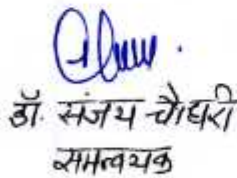 डॉ. संजय चौधरी
समन्वयक